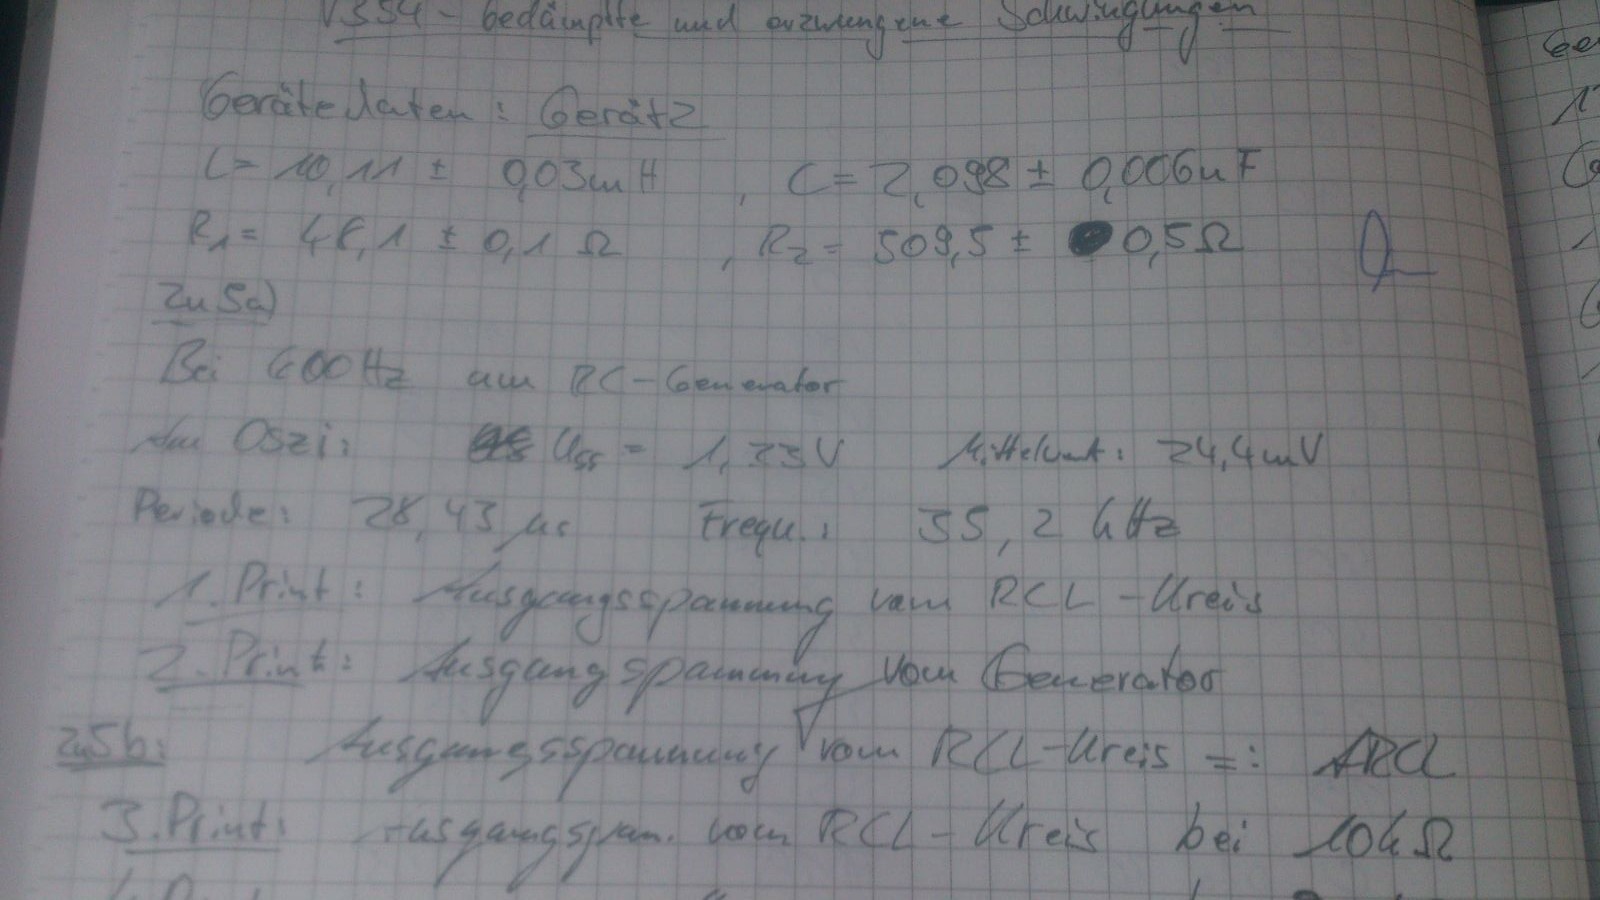 V354 - bedämpfte und erzwungene Schwingungen
Gerätedaten: Gerät 2
L = 10,11 ± 0,03mH , C = 2,098 ± 0,006nF
R1 = 48,1 ± 0,1 Ω , R2 = 509,5 ± 0,5Ω
Zu 5a)
Bei 600Hz am RC-Generator
Am Oszi: Uss = 1,33V Mittelwert: 24,4mV
Periode: 28,43 µs Frequ.: 35,2 kHz
1. Print: Ausgangsspannung vom RCL-Kreis
2. Print: Ausgangspannung vom Generator
zu 5b: Ausgangsspannung vom RCL-Kreis =: ARCL
3. Print: Ausgangspan. vom RCL-Kreis bei 10kΩ